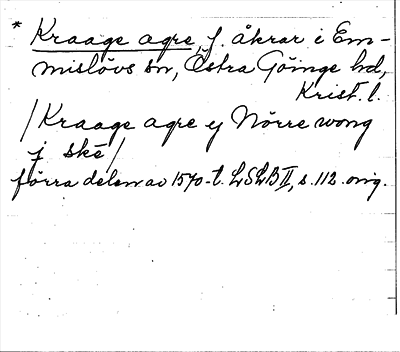 * Kraage agre f. åkrar i Em-
mislövs sn, Östra Göinge hd,
Krist. l.
/Kraage agre ij Nörre wong
j ské/
förra delen av 1570-t. LSLB II, s. 112. orig.